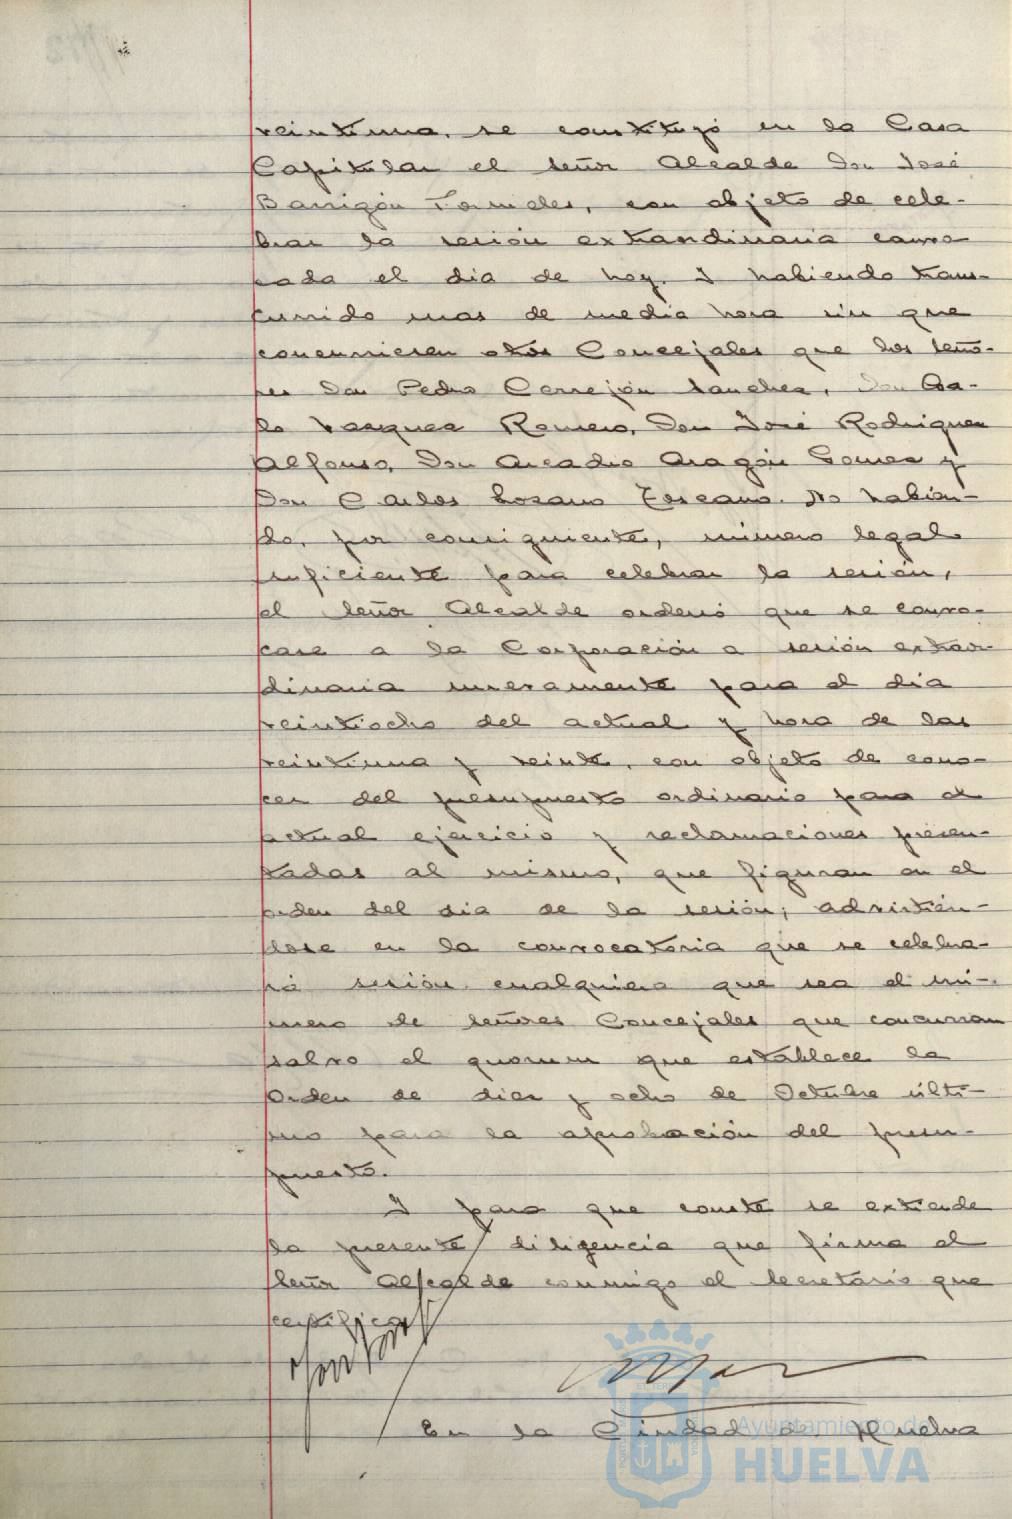 veintiuna, se constituyó en la Casa
Capitular el señor Alcalde Don José
Barrigón Fornieles, con objeto de cele-
brar la sesión extraordinaria convo-
cada el dia de hoy. Y habiendo trans-
currido mas de media hora sin que
concurriesen otros Concejales que los seño-
res Don Pedro Cerrejón Sanchez, Don Ga-
lo Vazquez Romero, Don José Rodriguez
Alfonso, Don Arcadio Aragón Gomez y
Don Carlos Lozano Toscano. No habien-
do, por consiguiente, número legal
suficiente para celebrar la sesión,
el señor Alcalde ordenó que se convo-
case a la Corporación a sesión extraor-
dinaria nuevamente para el dia
veintiocho del actual y hora de las
veintiuna y veinte, con objeto de cono-
cer del presupuesto ordinario para el
actual ejercicio y reclamaciones presen-
tadas al mismo, que figuran en el
orden del dia de la sesión; advirtién-
dose en la convocatoria que se celebra-
rá sesión cualquiera que sea el nú-
mero de señores Concejales que concurran
salvo el quorum que establece la
Orden de diez y ocho de Octubre últi-
mo para la aprobación del presu-
puesto.
Y para que conste se extiende
la presente diligencia que firma el
señor Alcalde conmigo el Secretario que
certifico.
En la Ciudad de Huelva
Ayuntamiento de
HUELVA